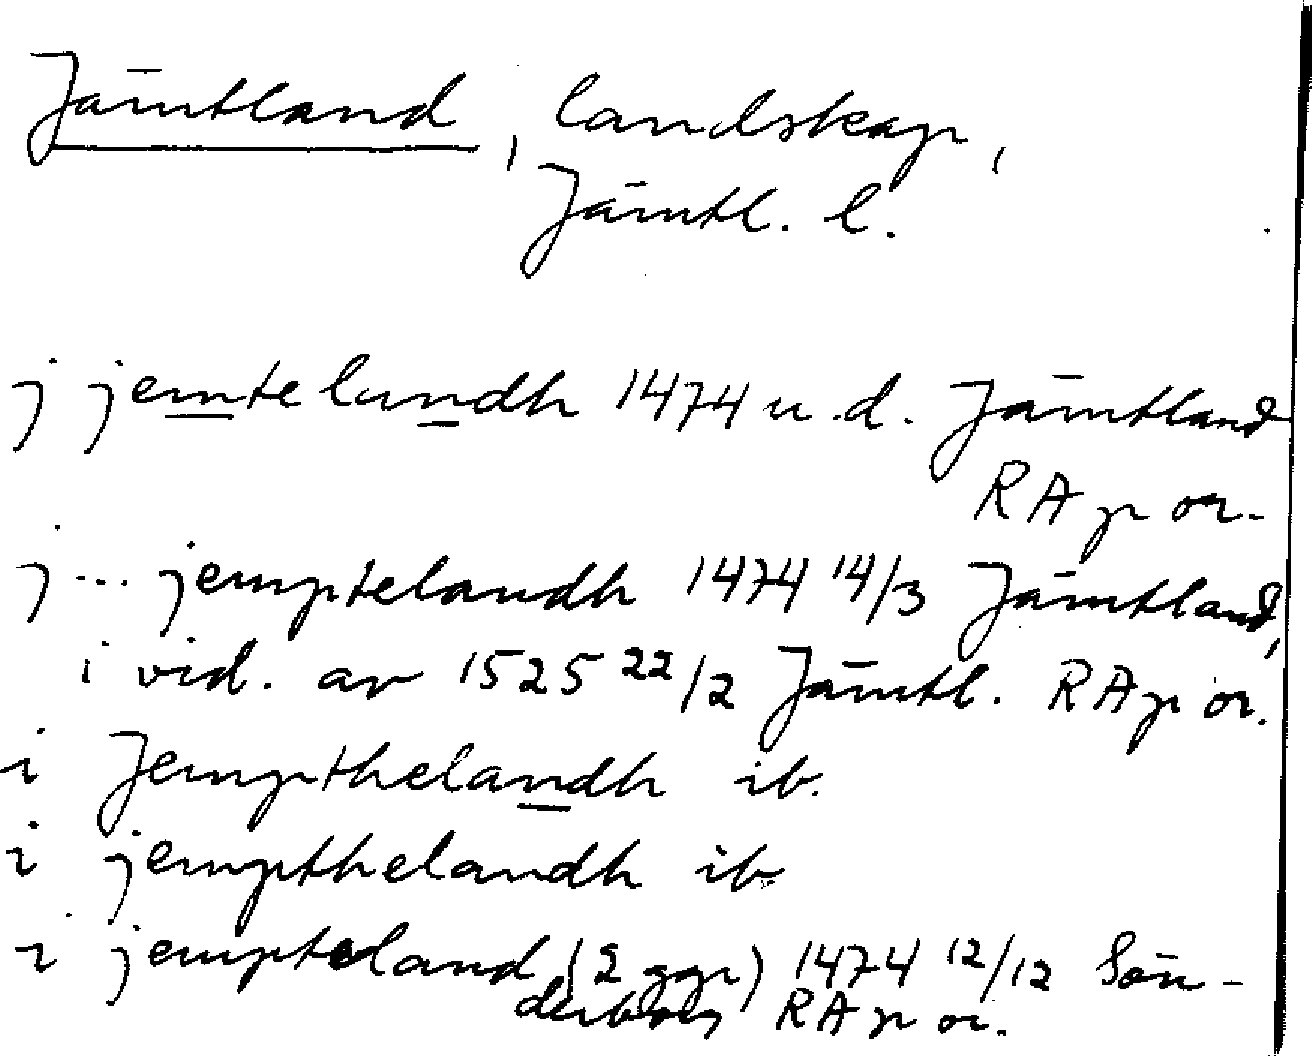 Jämtland, landskap,
Jämtl. l.
j jemtelandh 1474 u.d. Jämtland
RAp or.
j... jemptelandh 1474 14/3 Jämtland,
i vid. av 1525 22/2 Jämtl. RAp or.
i Jempthelandh ib.
i jempthelandh ib.
i jempteland (2 ggr) 1474 12/12 Sön-
derborg RAp or.